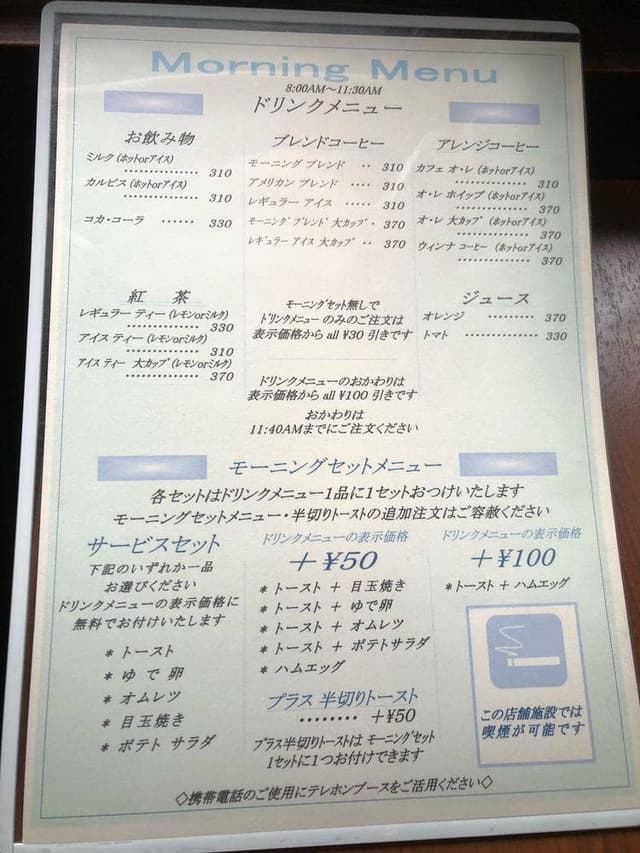 Morning Menu
8:00AM～11:30AM
ドリンクメニュー
お飲み物
ミルク (ホットorアイス)
・・・・・・・・・・・・・ 310
カルピス (ホットorアイス)
・・・・・・・・・・・・・ 310
コカ・コーラ ・・・・・・ 330
ブレンドコーヒー
モーニング ブレンド ・・ 310
アメリカン ブレンド ・・・・ 310
レギュラー アイス ・・・・・ 310
モーニング ブレンド 大カップ ・ 370
レギュラー アイス 大カップ ・・ 370
アレンジコーヒー
カフェ オ・レ (ホットorアイス)
・・・・・・・・・・・・・ 310
オ・レ ホイップ (ホットorアイス)
・・・・・・・・・・・・・ 370
オ・レ 大カップ (ホットorアイス)
・・・・・・・・・・・・・ 370
ウィンナ コーヒー (ホットorアイス)
・・・・・・・・・・・・・ 370
紅 茶
レギュラー ティー (レモンorミルク)
・・・・・・・・・・・・・ 330
アイス ティー (レモンorミルク)
・・・・・・・・・・・・・ 310
アイス ティー 大カップ (レモンorミルク)
・・・・・・・・・・・・・ 370
モーニングセット無しで
ドリンクメニュー のみのご注文は
表示価格から all ¥30 引きです
ドリンクメニューのおかわりは
表示価格から all ¥100 引きです
おかわりは
11:40AMまでにご注文ください
ジュース
オレンジ ・・・・・・・・ 370
トマト ・・・・・・・・・ 330
モーニングセットメニュー
各セットはドリンクメニュー1品に1セットおつけいたします
モーニングセットメニュー・半切りトーストの追加注文はご容赦ください
サービスセット
下記のいずれか一品
お選びください
ドリンクメニューの表示価格に
無料でお付けいたします
* トースト
* ゆ で 卵
* オムレツ
* 目玉焼き
* ポテト サラダ
ドリンクメニューの表示価格
＋¥50
* トースト ＋ 目玉焼き
* トースト ＋ ゆで卵
* トースト ＋ オムレツ
* トースト ＋ ポテトサラダ
* ハムエッグ
プラス 半切りトースト
・・・・・・・・ ＋¥50
プラス半切りトーストは モーニングセット
1セットに1つお付けできます
ドリンクメニューの表示価格
＋¥100
* トースト ＋ ハムエッグ
この店舗施設では
喫煙が可能です
◇携帯電話のご使用にテレホンブースをご活用ください◇